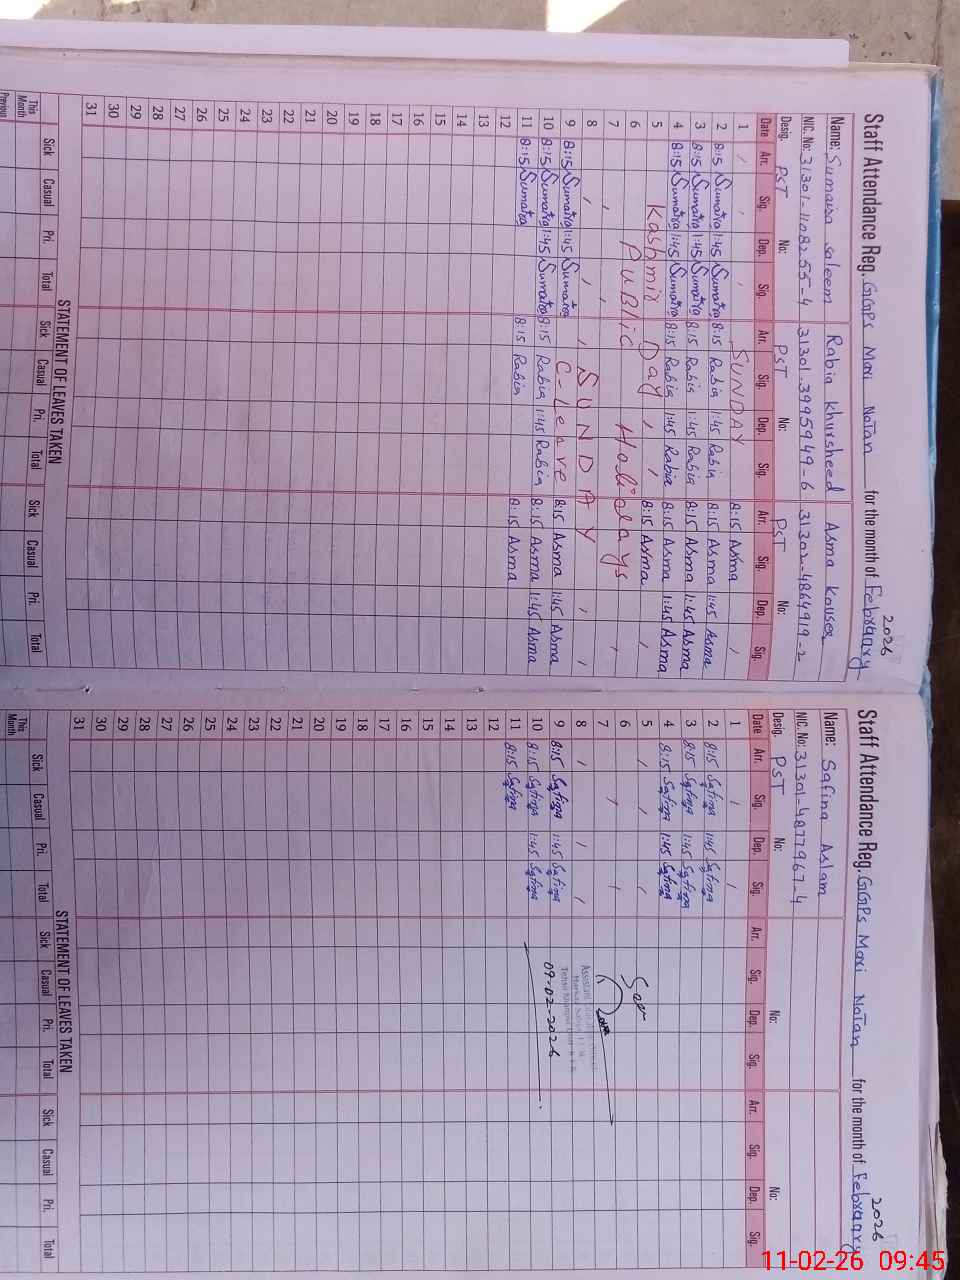 Staff Attendance Reg. GGPS Mari Notan for the month of February 2026
Name: Sumaira saleem Rabia khursheed Asma kousar
NIC. No: 31301-1108255-4 31301.3995949-6 31302-4864919-2
Desig. PST No: PST No: PST No:
Date Arr. Sig. Dep. Sig. Arr. Sig. Dep. Sig. Arr. Sig. Dep. Sig.
1 SUNDAY 8:15 Asma
2 8:15 Sumaira 1:45 Sumaira 8:15 Rabia 1:45 Rabia 8:15 Asma 1:45 Asma
3 8:15 Sumaira 1:45 Sumaira 8:15 Rabia 1:45 Rabia 8:15 Asma 1:45 Asma
4 8:15 Sumaira 1:45 Sumaira 8:15 Rabia 1:45 Rabia 8:15 Asma 1:45 Asma
5 Kashmir Day 8:15 Asma
6 PUBLIC Holidays
7
8 SUNDAY
9 8:15 Sumaira 1:45 Sumaira C-Leave 8:15 Asma 1:45 Asma
10 8:15 Sumaira 1:45 Sumaira 8:15 Rabia 1:45 Rabia 8:15 Asma 1:45 Asma
11 8:15 Sumaira 8:15 Rabia 8:15 Asma
12
13
14
15
16
17
18
19
20
21
22
23
24
25
26
27
28
29
30
31
STATEMENT OF LEAVES TAKEN
Sick Casual Pri. Total Sick Casual Pri. Total Sick Casual Pri. Total
This Month
Previous
Staff Attendance Reg. GGPS Mari Notan for the month of February 2026
Name: Safina Aslam
NIC. No: 31301-4877967-4
Desig. PST No: No: No:
Date Arr. Sig. Dep. Sig. Arr. Sig. Dep. Sig. Arr. Sig. Dep. Sig.
1
2 8:15 Safina 1:45 Safina
3 8:15 Safina 1:45 Safina
4 8:15 Safina 1:45 Safina
5
6 Seen
7
8
9 8:15 Safina 1:45 Safina
10 8:15 Safina 1:45 Safina 09-02-2026
11 8:15 Safina
12
13
14
15
16
17
18
19
20
21
22
23
24
25
26
27
28
29
30
31
STATEMENT OF LEAVES TAKEN
Sick Casual Pri. Total Sick Casual Pri. Total Sick Casual Pri. Total
This Month
11-02-26 09:45